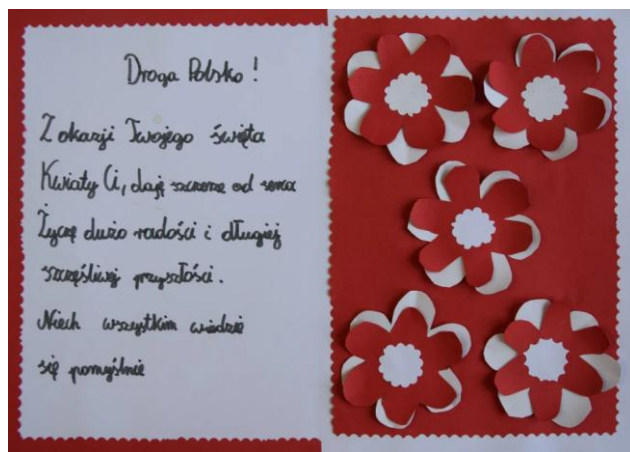 Droga Polsko!
Z okazji Twojego święta
Kwiaty Ci, daję szczerze od serca
Życzę dużo radości i długiej
szczęśliwej przyszłości.
Niech wszystkim wiedzie
się pomyślnie